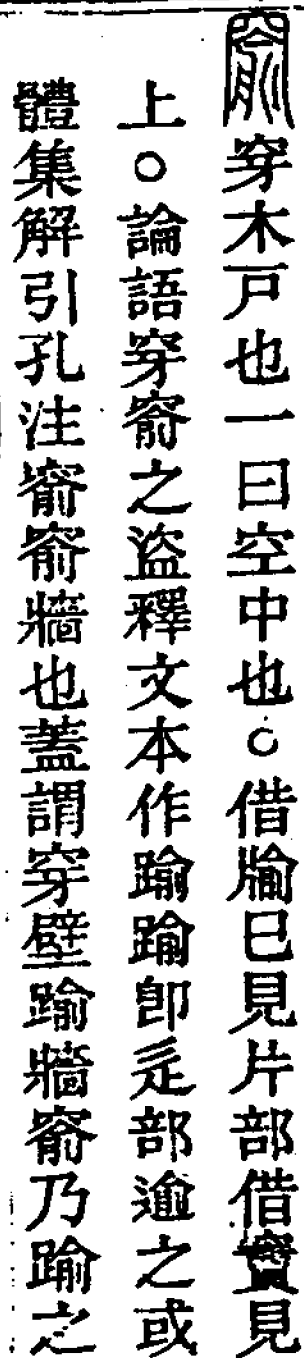 窬穿木戸也一曰空中也○借牏巳見片部借竇見
上○論語穿窬之盜釋文本作踰踰卽辵部逾之或
體集解引孔注窬窬牆也蓋謂穿壁踰牆窬乃踰之